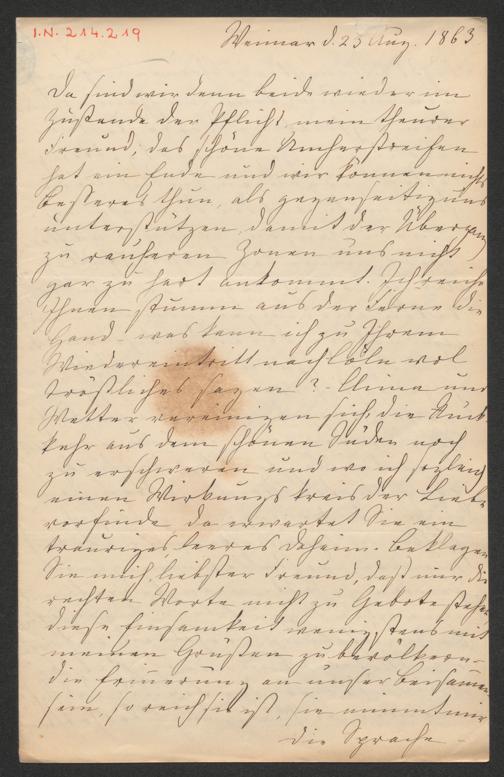 I.N. 214.219
Weimar d. 25 Aug. 1863
Da sind wir denn beide wieder im
Zustande der Pflicht mein theurer
Freund; das schöne Umherstreifen
hat ein Ende und wir können nichts
Besseres thun, als gegenseitig uns
unterstützen, damit der Übergang
zu rauheren Zonen uns nicht
gar zu hart ankommt. Ich reiche
Ihnen stumm aus der Ferne die
Hand – was kann ich zu Ihrem
Wiedereintritt nach Cöln wol
tröstliches sagen? – Clima und
Wetter vereinigen sich, die Rück
kehr aus dem schönen Süden noch
zu erschweren und wo ich sogleich
einen Wirkungskreis der Liebe
vorfinde, da erwartet Sie ein
trauriges leeres Daheim. Beklagen
Sie mich, liebster Freund, daß mir die
rechten Worte nicht zu Gebote stehen
diese Einsamkeit wenigstens mit
meinen Grüßen zu bevölkern –
die Erinnerung an unser Beisammen
sein, so reich sie ist, sie nimmt mir
die Sprache –